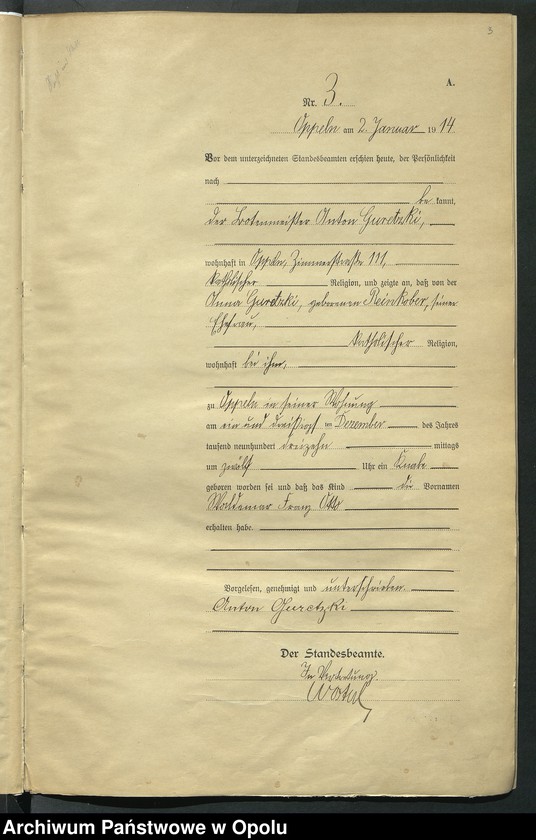 3
A.
Nr. 3.
Oppeln am 2. Januar 1914.
Vor dem unterzeichneten Standesbeamten erschien heute, der Persönlichkeit
nach
be kannt,
der Botenmeister Anton Guretzki,
wohnhaft in Oppeln, Zimmerstraße 111,
katholischer Religion, und zeigte an, daß von der
Anna Guretzki, geborenen Reinkober, seiner
Ehefrau,
katholischer Religion,
wohnhaft bei ihm,
zu Oppeln in seiner Wohnung
am ein und dreißigsten Dezember des Jahres
tausend neunhundert dreizehn mittags
um zwölf Uhr ein Knabe
geboren worden sei und daß das Kind die Vornamen
Waldemar Franz Otto
erhalten habe.
Vorgelesen, genehmigt und unterschrieben.
Anton Guretzki
Der Standesbeamte.
In Vertretung.
Archiwum Państwowe w Opolu